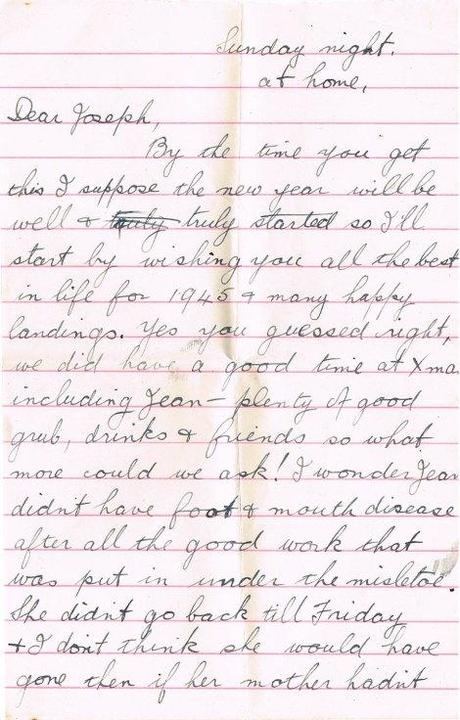 Sunday night.
at home,
Dear Joseph,
By the time you get
this I suppose the new year will be
well & truly truly started so I'll
start by wishing you all the best
in life for 1945 & many happy
landings. Yes you guessed right,
we did have a good time at Xma
including Jean – plenty of good
grub, drinks & friends so what
more could we ask! I wonder Jean
didn't have foot & mouth disease
after all the good work that
was put in under the misletoe.
She didn't go back till Friday
& I don't think she would have
gone then if her mother hadn't